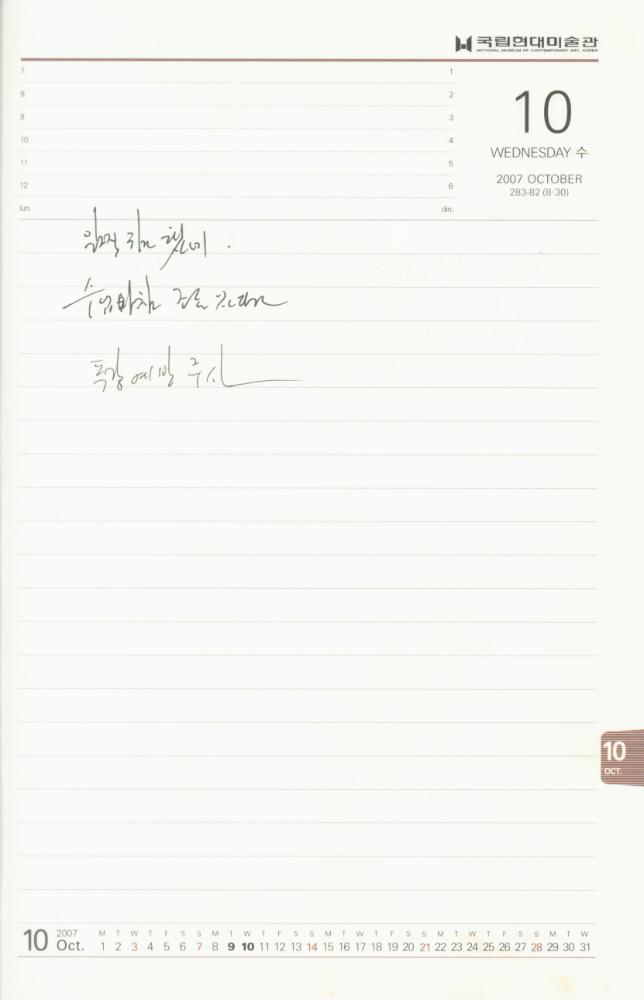 국립현대미술관
NATIONAL MUSEUM OF CONTEMPORARY ART, KOREA
7
8
9
10
11
12
lun.
1
2
3
4
5
6
din.
10
WEDNESDAY 수
2007 OCTOBER
283-82 (8·30)
독감예방 주사
10
OCT.
10 2007 Oct.
M T W T F S S M T W T F S S M T W T F S S M T W T F S S M T W
1 2 3 4 5 6 7 8 9 10 11 12 13 14 15 16 17 18 19 20 21 22 23 24 25 26 27 28 29 30 31